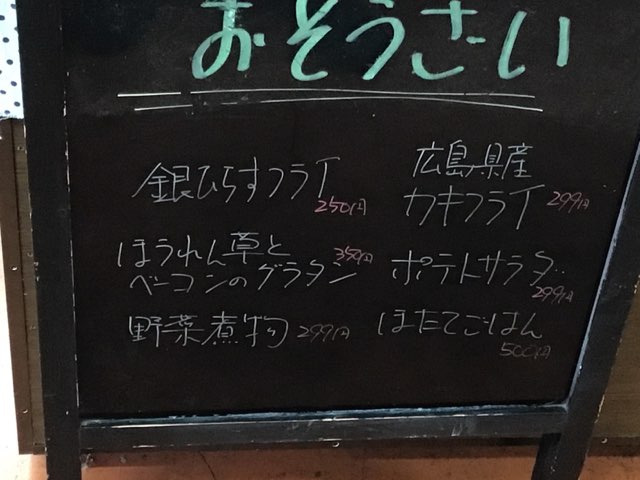 おそうざい
銀ひらすフライ
250円
ほうれん草と
ベーコンのグラタン 350円
野菜煮物 299円
広島県産
カキフライ 299円
ポテトサラダ
299円
ほたてごはん
500円